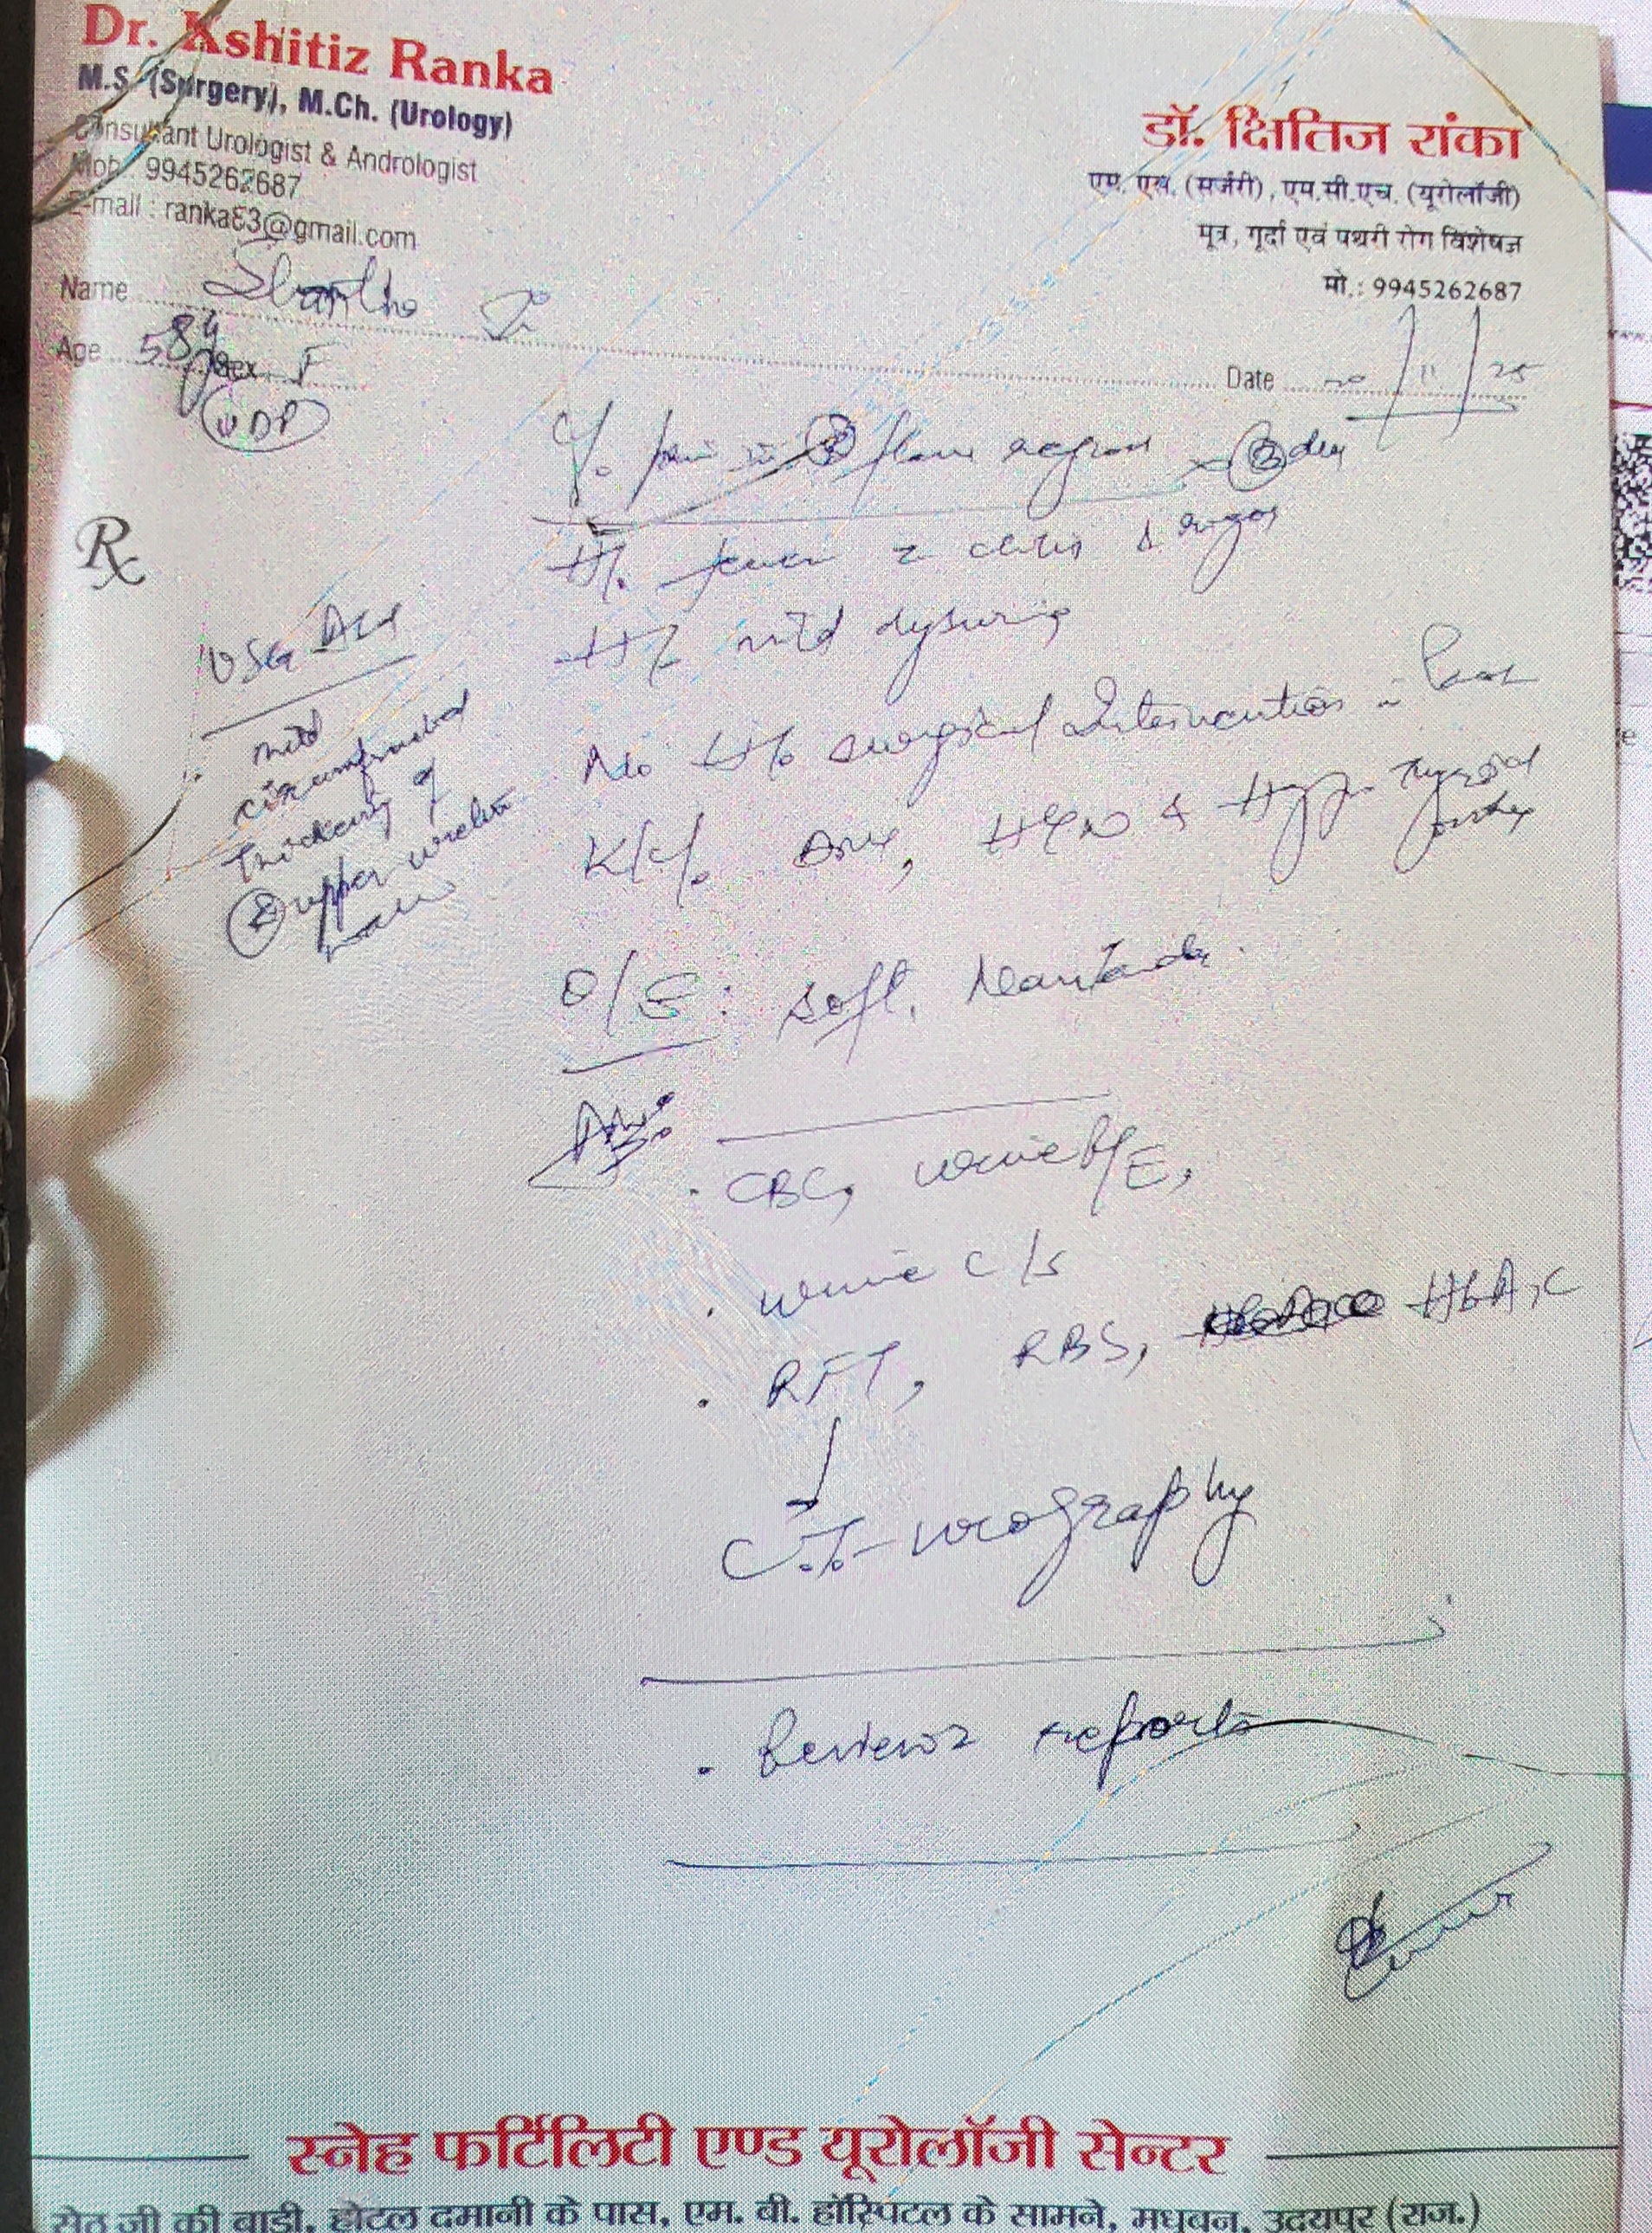 Dr. Kshitiz Ranka
M.S. (Surgery), M.Ch. (Urology)
Consultant Urologist & Andrologist
Mob. 9945262687
E-mail : ranka83@gmail.com
डॉ. क्षितिज रांका
एम. एस. (सर्जरी), एम.सी.एच. (यूरोलॉजी)
मूत्र, गूर्दा एवं पथरी रोग विशेषज्ञ
मो.: 9945262687
Name
Age 58y Sex F
Date 20/11/25
C/o pain in flank region x
Rx
H/o fever c chills & rigors
USG
H/o mild dysuria
mild
circumferential
thickening of
upper ureteric
No H/o surgical Intervention in Past
K/C/o HTN &
O/E : soft, Nontender.
Adv.
. CBC, urine R/E,
. urine c/s
. RFT, RBS, HbA1C
↓
C.T. urography
. Review reports
स्नेह फर्टिलिटी एण्ड यूरोलॉजी सेन्टर
सेठ जी की बाडी, होटल दमानी के पास, एम. बी. हॉस्पिटल के सामने, मधुवन, उदयपुर (राज.)